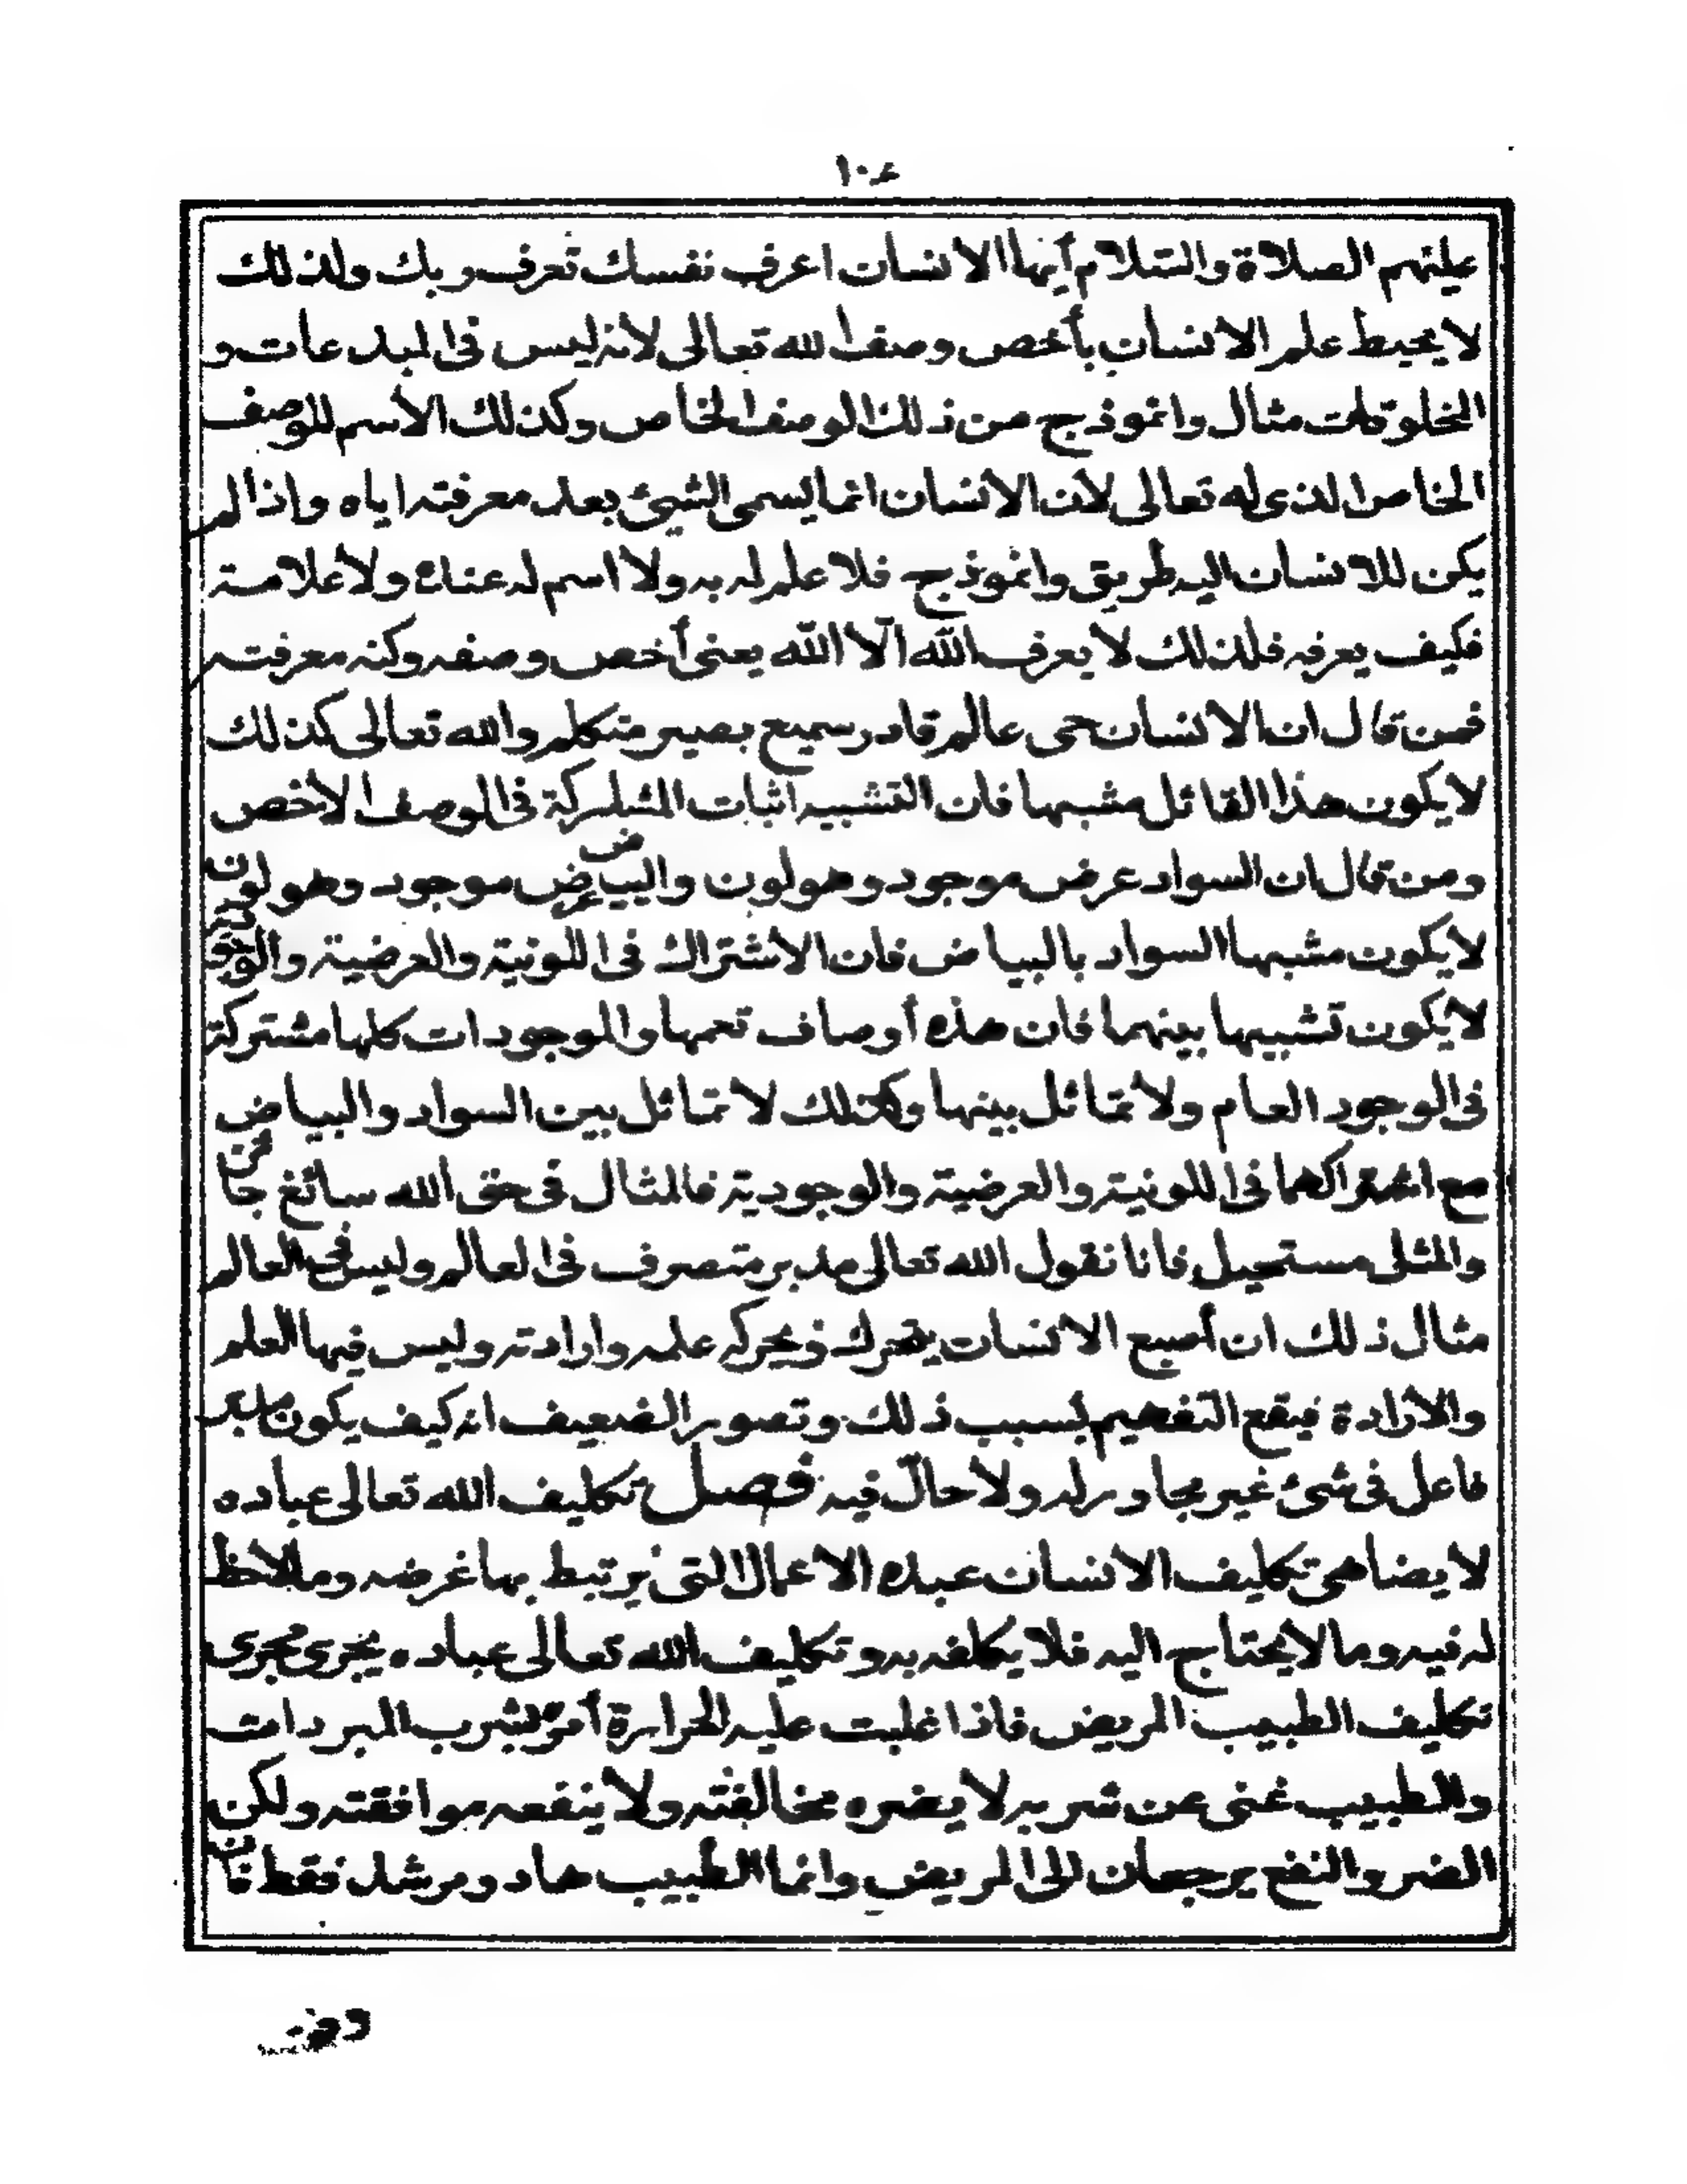 ١٠٤
عليهم الصلاة والسلام أيها الانسان اعرف نفسك تعرف ربك ولذلك
لا يحيط علم الانسان بأخص وصف الله تعالى لأنه ليس فى المبدعات و
المخلوقات مثال وانموذج من ذلك الوصف الخاص وكذلك الأسم للوصف
الخاص الذى له تعالى لأن الانسان انما يسمى الشيئ بعد معرفته اياه واذا لم
يكن للانسان اليه طريق وانموذج فلا علم له به ولا اسم له عنده ولا علامة
فكيف يعرفه فلذلك لا يعرف الله الّا الله يعنى أخص وصفه وكنه معرفته
فمن قال ان الانسان حى عالم قادر سميع بصير متكلم والله تعالى كذلك
لا يكون هذا القائل مشبها فان التشبيه اثبات المشاركة فى الوصف الأخص
ومن قال ان السواد عرض موجود وهو لون والبياض عرض موجود وهو لون
لا يكون مشبها السواد بالبياض فان الأشتراك فى اللونية والعرضية والوجودية
لا يكون تشبيها بينهما فان هذه أوصاف تعمها والموجودات كلها مشتركة
فى الوجود العام ولا تماثل بينها وكذلك لا تماثل بين السواد والبياض
مع اشتراكهما فى اللونية والعرضية والوجودية فالمثال فى حق الله سائغ جائز
والمثلى مستحيل فانا نقول الله تعالى مدبر متصرف فى العالم وليس فى العالم
مثال ذلك ان أصبع الانسان يتحرك ويحركه علمه وارادته وليس فيها العلم
والارادة فيقع التفهيم بسبب ذلك وتصور الضعيف انه كيف يكون مدبر
فاعل فى شئ غير مجاور له ولا حالّ فيه فصل تكليف الله تعالى عباده
لا يضاهى تكليف الانسان عبده الاعمال التى يرتبط بها غرضه وملاحظ
له فيه وما لا يحتاج اليه فلا يكلفه به وتكليف الله تعالى عباده يجرى مجرى
تكليف الطبيب المريض فاذا غلبت عليه الحرارة أمره بشرب المبردات
والطبيب غنى عن شربه لا يضره مخالفته ولا ينفعه موافقته ولكن
الضر والنفع يرجعان الى المريض وانما الطبيب هاد ومرشد فقط فان